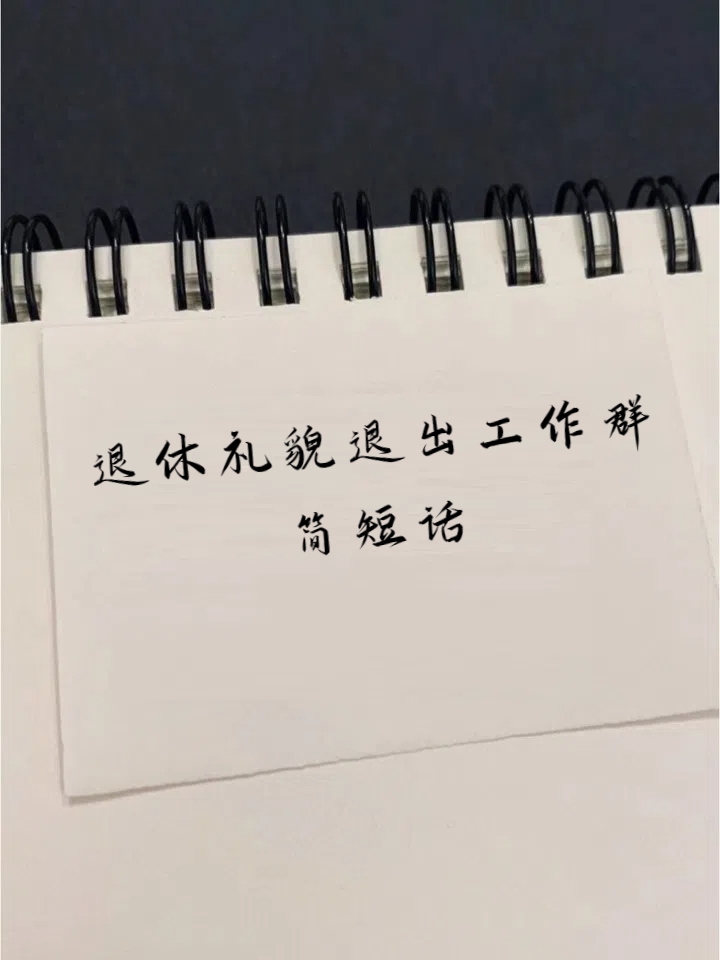 退休礼貌退出工作群
简短话